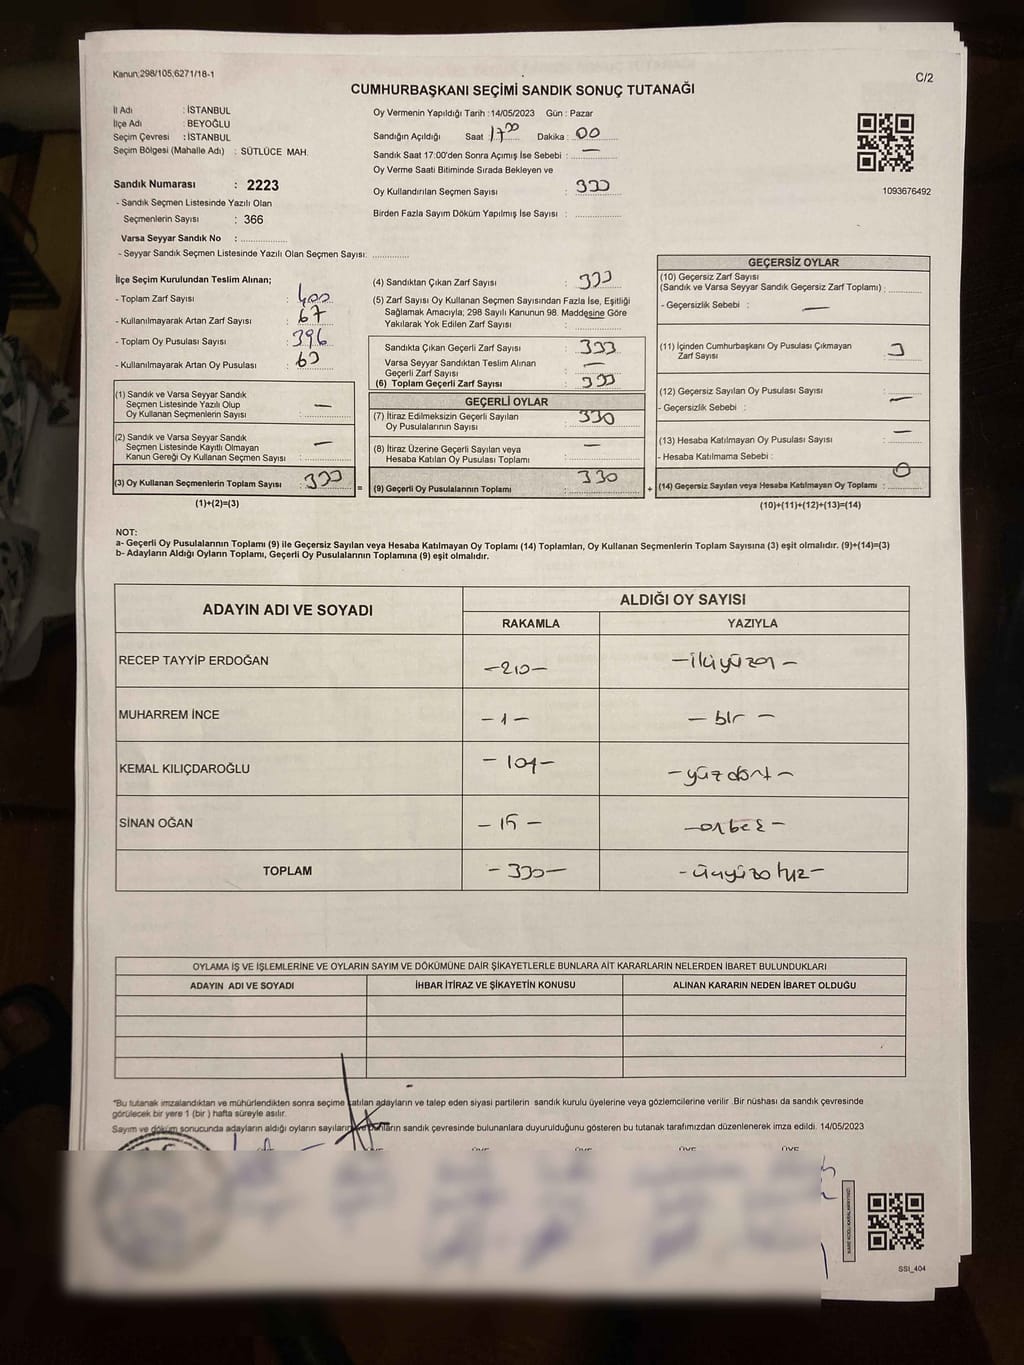 Kanun:298/105,6271/18-1
C/2
CUMHURBAŞKANI SEÇİMİ SANDIK SONUÇ TUTANAĞI
İl Adı : İSTANBUL
İlçe Adı : BEYOĞLU
Seçim Çevresi : İSTANBUL
Seçim Bölgesi (Mahalle Adı) : SÜTLÜCE MAH.
Sandık Numarası : 2223
- Sandık Seçmen Listesinde Yazılı Olan
Seçmenlerin Sayısı : 366
Varsa Seyyar Sandık No :
- Seyyar Sandık Seçmen Listesinde Yazılı Olan Seçmen Sayısı:
Oy Vermenin Yapıldığı Tarih :14/05/2023 Gün : Pazar
Sandığın Açıldığı Saat :17:00 Dakika : 00
Sandık Saat 17:00'den Sonra Açımış İse Sebebi : —
Oy Verme Saati Bitiminde Sırada Bekleyen ve
Oy Kullandırılan Seçmen Sayısı : 333
Birden Fazla Sayım Döküm Yapılmış İse Sayısı :
1093676492
İlçe Seçim Kurulundan Teslim Alınan;
- Toplam Zarf Sayısı : 400
- Kullanılmayarak Artan Zarf Sayısı : 67
- Toplam Oy Pusulası Sayısı : 396
- Kullanılmayarak Artan Oy Pusulası : 63
(1) Sandık ve Varsa Seyyar Sandık
Seçmen Listesinde Yazılı Olup
Oy Kullanan Seçmenlerin Sayısı : —
(2) Sandık ve Varsa Seyyar Sandık
Seçmen Listesinde Kayıtlı Olmayan
Kanun Gereği Oy Kullanan Seçmen Sayısı : —
(3) Oy Kullanan Seçmenlerin Toplam Sayısı : 333
(1)+(2)=(3)
(4) Sandıktan Çıkan Zarf Sayısı : 333
(5) Zarf Sayısı Oy Kullanan Seçmen Sayısından Fazla İse, Eşitliği
Sağlamak Amacıyla; 298 Sayılı Kanunun 98. Maddesine Göre
Yakılarak Yok Edilen Zarf Sayısı :
Sandıkta Çıkan Geçerli Zarf Sayısı : 333
Varsa Seyyar Sandıktan Teslim Alınan
Geçerli Zarf Sayısı : —
(6) Toplam Geçerli Zarf Sayısı : 333
GEÇERLİ OYLAR
(7) İtiraz Edilmeksizin Geçerli Sayılan
Oy Pusulalarının Sayısı : 330
(8) İtiraz Üzerine Geçerli Sayılan veya
Hesaba Katılan Oy Pusulası Toplamı : —
= (9) Geçerli Oy Pusulalarının Toplamı : 330
GEÇERSİZ OYLAR
(10) Geçersiz Zarf Sayısı
(Sandık ve Varsa Seyyar Sandık Geçersiz Zarf Toplamı) :
- Geçersizlik Sebebi : —
(11) İçinden Cumhurbaşkanı Oy Pusulası Çıkmayan
Zarf Sayısı : 3
(12) Geçersiz Sayılan Oy Pusulası Sayısı :
- Geçersizlik Sebebi : —
(13) Hesaba Katılmayan Oy Pusulası Sayısı : —
- Hesaba Katılmama Sebebi :
+ (14) Geçersiz Sayılan veya Hesaba Katılmayan Oy Toplamı : 0
(10)+(11)+(12)+(13)=(14)
NOT:
a- Geçerli Oy Pusulalarının Toplamı (9) ile Geçersiz Sayılan veya Hesaba Katılmayan Oy Toplamı (14) Toplamları, Oy Kullanan Seçmenlerin Toplam Sayısına (3) eşit olmalıdır. (9)+(14)=(3)
b- Adayların Aldığı Oyların Toplamı, Geçerli Oy Pusulalarının Toplamına (9) eşit olmalıdır.
ADAYIN ADI VE SOYADI
ALDIĞI OY SAYISI
RAKAMLA YAZIYLA
RECEP TAYYİP ERDOĞAN -210- -ikiyüzon-
MUHARREM İNCE -1- -bir-
KEMAL KILIÇDAROĞLU -104- -yüzdört-
SİNAN OĞAN -15- -onbeş-
TOPLAM -330- -üçyüzotuz-
OYLAMA İŞ VE İŞLEMLERİNE VE OYLARIN SAYIM VE DÖKÜMÜNE DAİR ŞİKAYETLERLE BUNLARA AİT KARARLARIN NELERDEN İBARET BULUNDUKLARI
ADAYIN ADI VE SOYADI İHBAR İTİRAZ VE ŞİKAYETİN KONUSU ALINAN KARARIN NEDEN İBARET OLDUĞU
"Bu tutanak imzalandıktan ve mühürlendikten sonra seçime katılan adayların ve talep eden siyasi partilerin sandık kurulu üyelerine veya gözlemcilerine verilir .Bir nüshası da sandık çevresinde
görülecek bir yere 1 (bir ) hafta süreyle asılır.
Sayım ve döküm sonucunda adayların aldığı oyların sayıları ve bunların sandık çevresinde bulunanlara duyurulduğunu gösteren bu tutanak tarafımızdan düzenlenerek imza edildi. 14/05/2023
ÜYE ÜYE ÜYE ÜYE ÜYE
SSI_404